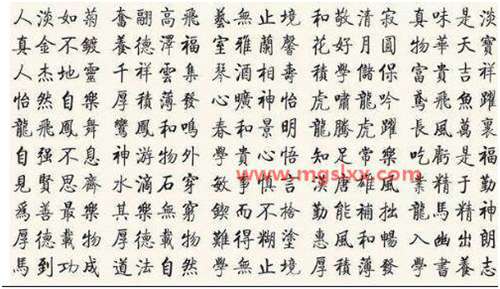 人淡如菊 奮翮高飛 藝無止境 和敬清寂 真味是淡
真金不鍍 養德澤福 室雅蘭馨 花好月圓 物華天寶
人杰地靈 千祥雲集 琴酒相壽 積學儲保 富貴吉祥
怡然自樂 厚積薄發 心曠神怡 虎嘯龍吟 鳶飛魚躍
龍飛鳳舞 鸞鳳和鳴 春和景明 龍騰虎躍 長風萬裏
自强不息 神游物外 學貴心悟 知足常樂 吃虧是福
見賢思齊 水滴石穿 敏事慎言 漢唐雄風 業精于勤
為善最樂 其樂無窮 鍥而不捨 勤能補拙 龍馬精神
厚德載物 厚德載物 難得糊塗 惠風和暢 入幽出朗
馬到功成 道法自然 學無止境 厚積薄發 學書養志
www.mgslxx.com